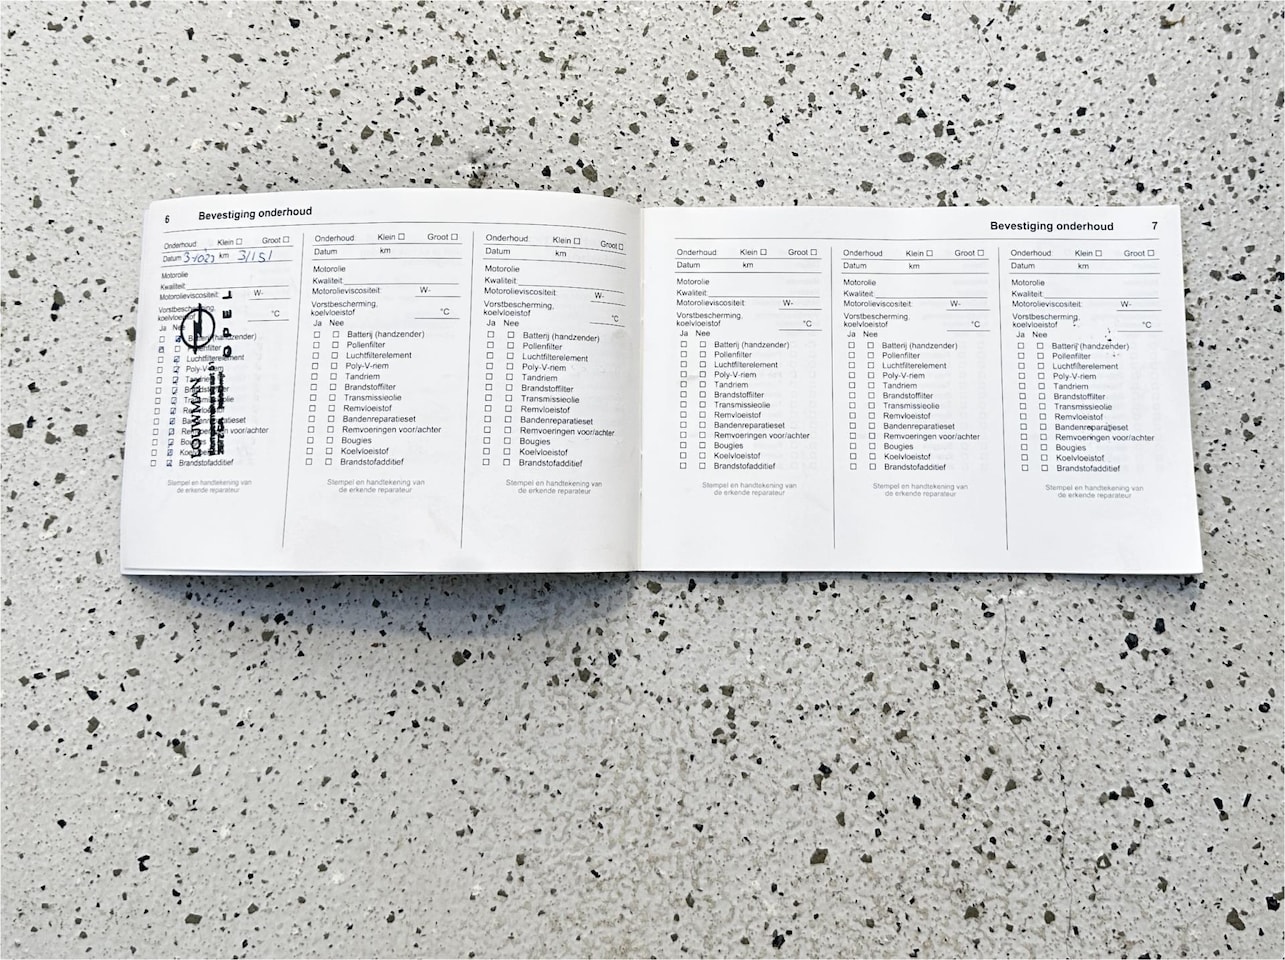 6 Bevestiging onderhoud
Onderhoud Klein Groot
Datum km 31151
Motorolie
Kwaliteit:
Motorolieviscositeit: W-
Vorstbescherming,
koelvloeistof °C
Ja Nee
Batterij (handzender)
Pollenfilter
Luchtfilterelement
Poly-V-riem
Tandriem
Brandstoffilter
Transmissieolie
Remvloeistof
Bandenreparatieset
Remvoeringen voor/achter
Bougies
Koelvloeistof
Brandstofadditief
OPEL
Stempel en handtekening van
de erkende reparateur
Onderhoud Klein Groot
Datum km
Motorolie
Kwaliteit:
Motorolieviscositeit: W-
Vorstbescherming,
koelvloeistof °C
Ja Nee
Batterij (handzender)
Pollenfilter
Luchtfilterelement
Poly-V-riem
Tandriem
Brandstoffilter
Transmissieolie
Remvloeistof
Bandenreparatieset
Remvoeringen voor/achter
Bougies
Koelvloeistof
Brandstofadditief
Stempel en handtekening van
de erkende reparateur
Onderhoud Klein Groot
Datum km
Motorolie
Kwaliteit:
Motorolieviscositeit: W-
Vorstbescherming,
koelvloeistof °C
Ja Nee
Batterij (handzender)
Pollenfilter
Luchtfilterelement
Poly-V-riem
Tandriem
Brandstoffilter
Transmissieolie
Remvloeistof
Bandenreparatieset
Remvoeringen voor/achter
Bougies
Koelvloeistof
Brandstofadditief
Stempel en handtekening van
de erkende reparateur
Bevestiging onderhoud 7
Onderhoud Klein Groot
Datum km
Motorolie
Kwaliteit:
Motorolieviscositeit: W-
Vorstbescherming,
koelvloeistof °C
Ja Nee
Batterij (handzender)
Pollenfilter
Luchtfilterelement
Poly-V-riem
Tandriem
Brandstoffilter
Transmissieolie
Remvloeistof
Bandenreparatieset
Remvoeringen voor/achter
Bougies
Koelvloeistof
Brandstofadditief
Stempel en handtekening van
de erkende reparateur
Onderhoud Klein Groot
Datum km
Motorolie
Kwaliteit:
Motorolieviscositeit: W-
Vorstbescherming,
koelvloeistof °C
Ja Nee
Batterij (handzender)
Pollenfilter
Luchtfilterelement
Poly-V-riem
Tandriem
Brandstoffilter
Transmissieolie
Remvloeistof
Bandenreparatieset
Remvoeringen voor/achter
Bougies
Koelvloeistof
Brandstofadditief
Stempel en handtekening van
de erkende reparateur
Onderhoud Klein Groot
Datum km
Motorolie
Kwaliteit:
Motorolieviscositeit: W-
Vorstbescherming,
koelvloeistof °C
Ja Nee
Batterij (handzender)
Pollenfilter
Luchtfilterelement
Poly-V-riem
Tandriem
Brandstoffilter
Transmissieolie
Remvloeistof
Bandenreparatieset
Remvoeringen voor/achter
Bougies
Koelvloeistof
Brandstofadditief
Stempel en handtekening van
de erkende reparateur